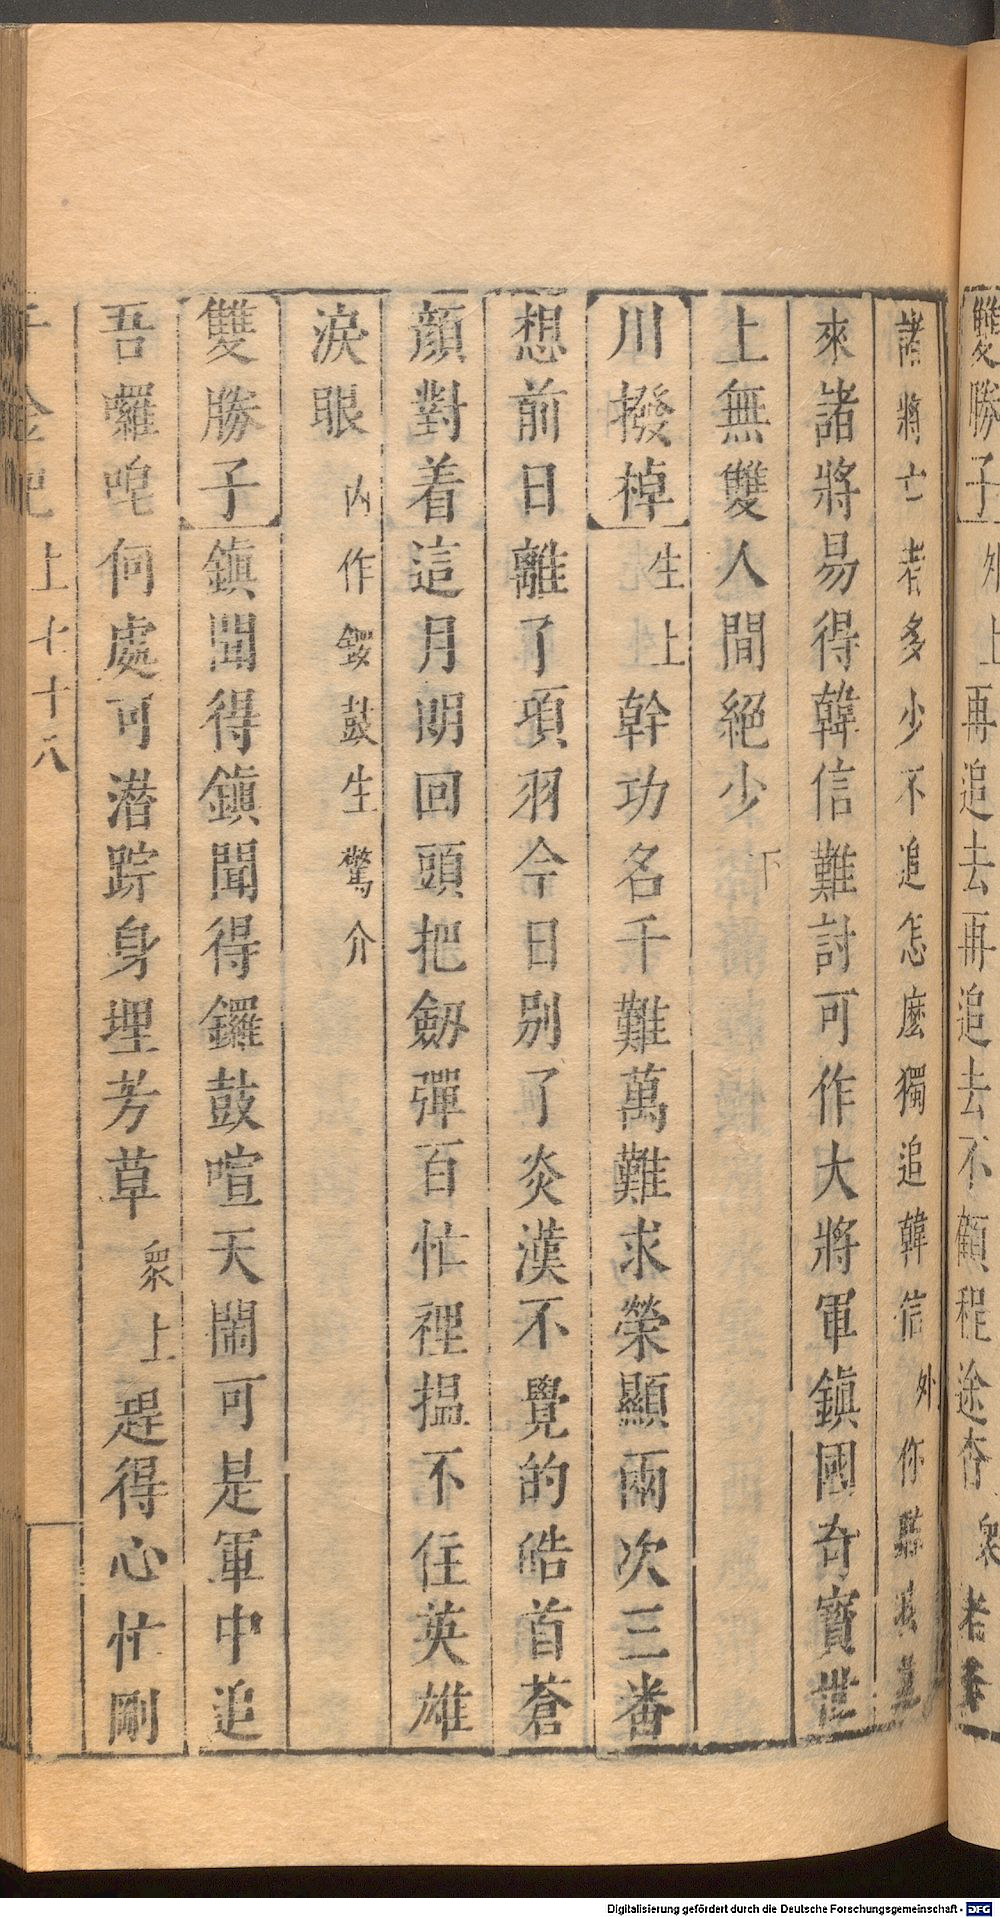 雙勝子外上再追去再追去不顧程途夯衆
諸將亡者多少不追怎麼獨追韓信外你
來諸將易得韓信難討可作大將軍鎮國奇寳世
上無雙人間絕少下
川撥棹生上幹功名千難萬難求榮顯兩次三番
想前日離了項羽今日别了炎漢不覺的皓首蒼
顔對着這月朗回頭把劔彈百忙裡揾不住英雄
淚眼内作鑼鼓生驚介
雙勝子鎮聞得鎮聞得鑼鼓喧天閙可是軍中追
吾囉唣何處可潜踪身埋芳草衆上趕得心忙剛
千金記上七十八
Digitalisierung gefördert durch die Deutsche Forschungsgemeinschaft - DFG